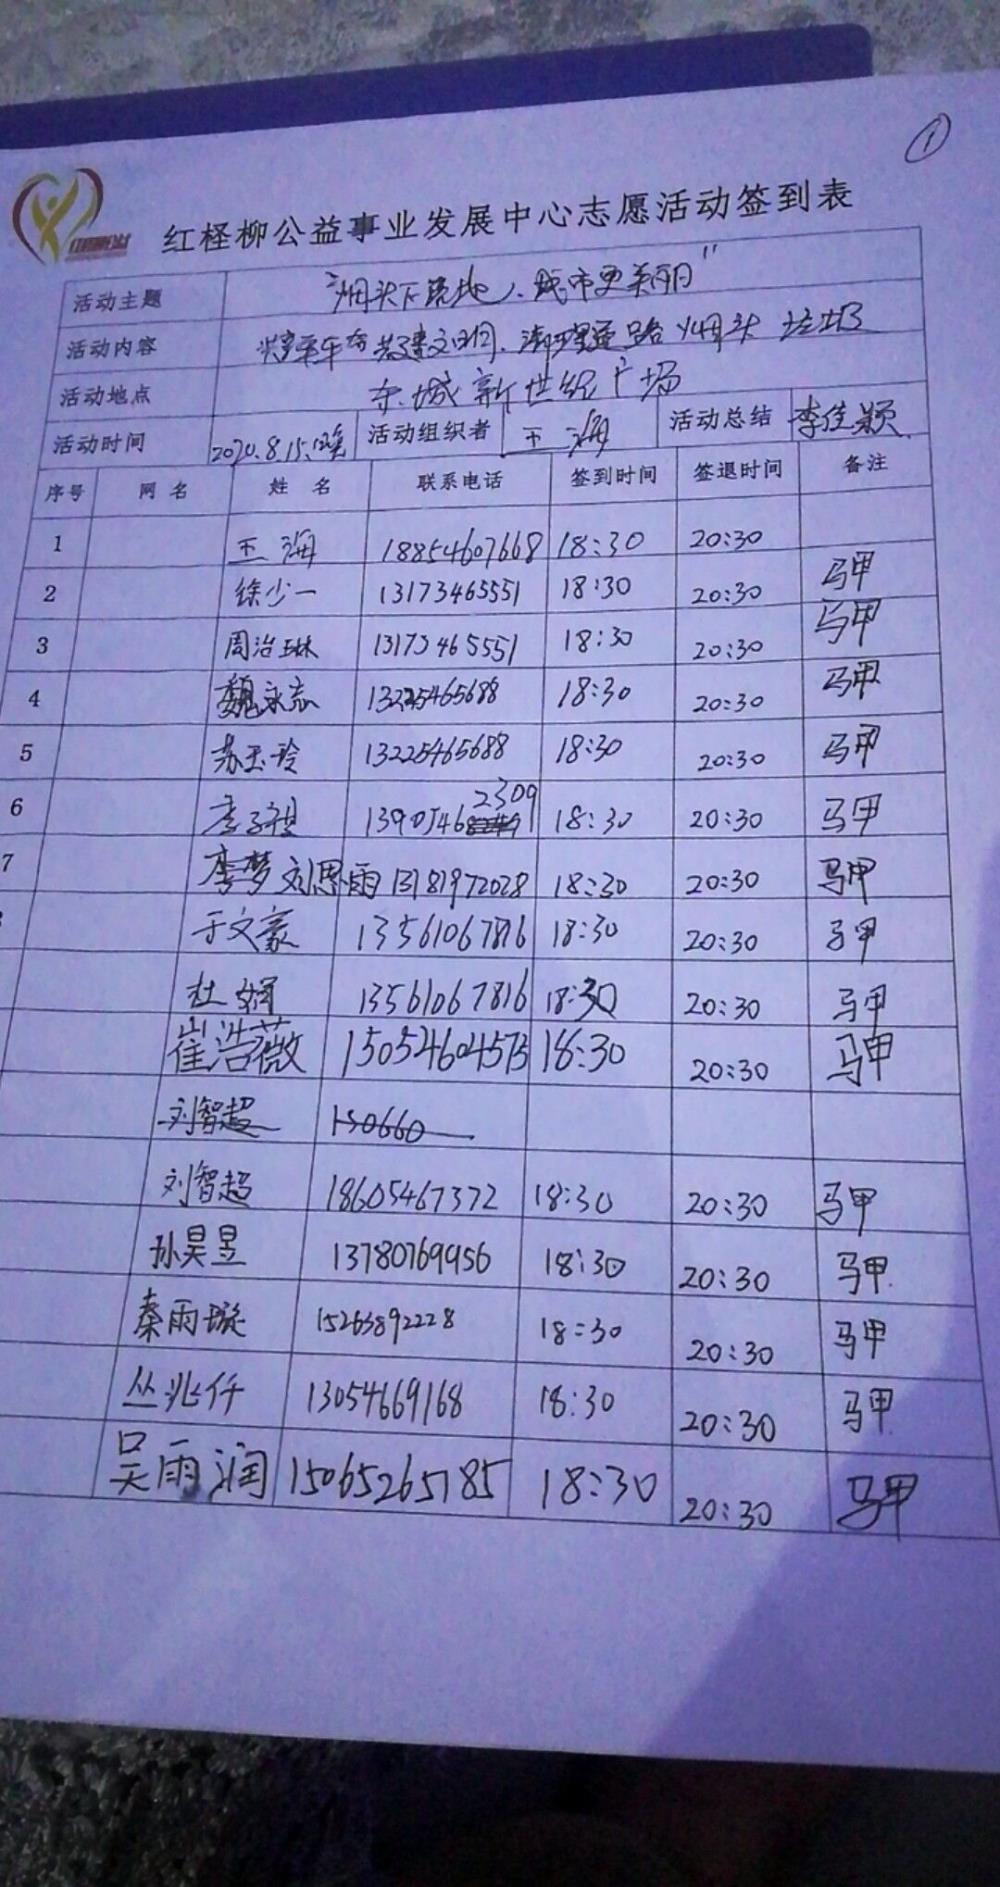 1
红柽柳公益事业发展中心志愿活动签到表
活动主题 "烟头不落地、城市更美丽"
活动内容 共建文明、清理道路烟头垃圾
活动地点 东城新世纪广场
活动时间 2020.8.15.晚 活动组织者 王海 活动总结 李佳颖
序号 网名 姓名 联系电话 签到时间 签退时间 备注
1 王海 18854607668 18:30 20:30
2 徐少一 13173465551 18:30 20:30 马甲
3 周治琳 13173465551 18:30 20:30 马甲
4 魏永志 13225465688 18:30 20:30 马甲
5 苏玉玲 13225465688 18:30 20:30 马甲
6 李子祺 13905462309 18:30 20:30 马甲
7 李梦 刘思雨 13181972028 18:30 20:30 马甲
于文豪 13561067816 18:30 20:30 马甲
杜娟 13561067816 18:30 20:30 马甲
崔浩薇 15054604573 18:30 20:30 马甲
刘智超 150660
刘智超 18605467372 18:30 20:30 马甲
孙昊昱 13780769956 18:30 20:30 马甲
秦雨璇 15263892228 18:30 20:30 马甲
丛兆仟 13054669168 18:30 20:30 马甲
吴雨润 15065265785 18:30 20:30 马甲